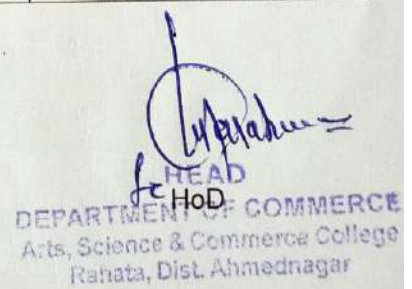 HEAD
HoD
DEPARTMENT OF COMMERCE
Arts, Science & Commerce College
Rahata, Dist. Ahmednagar